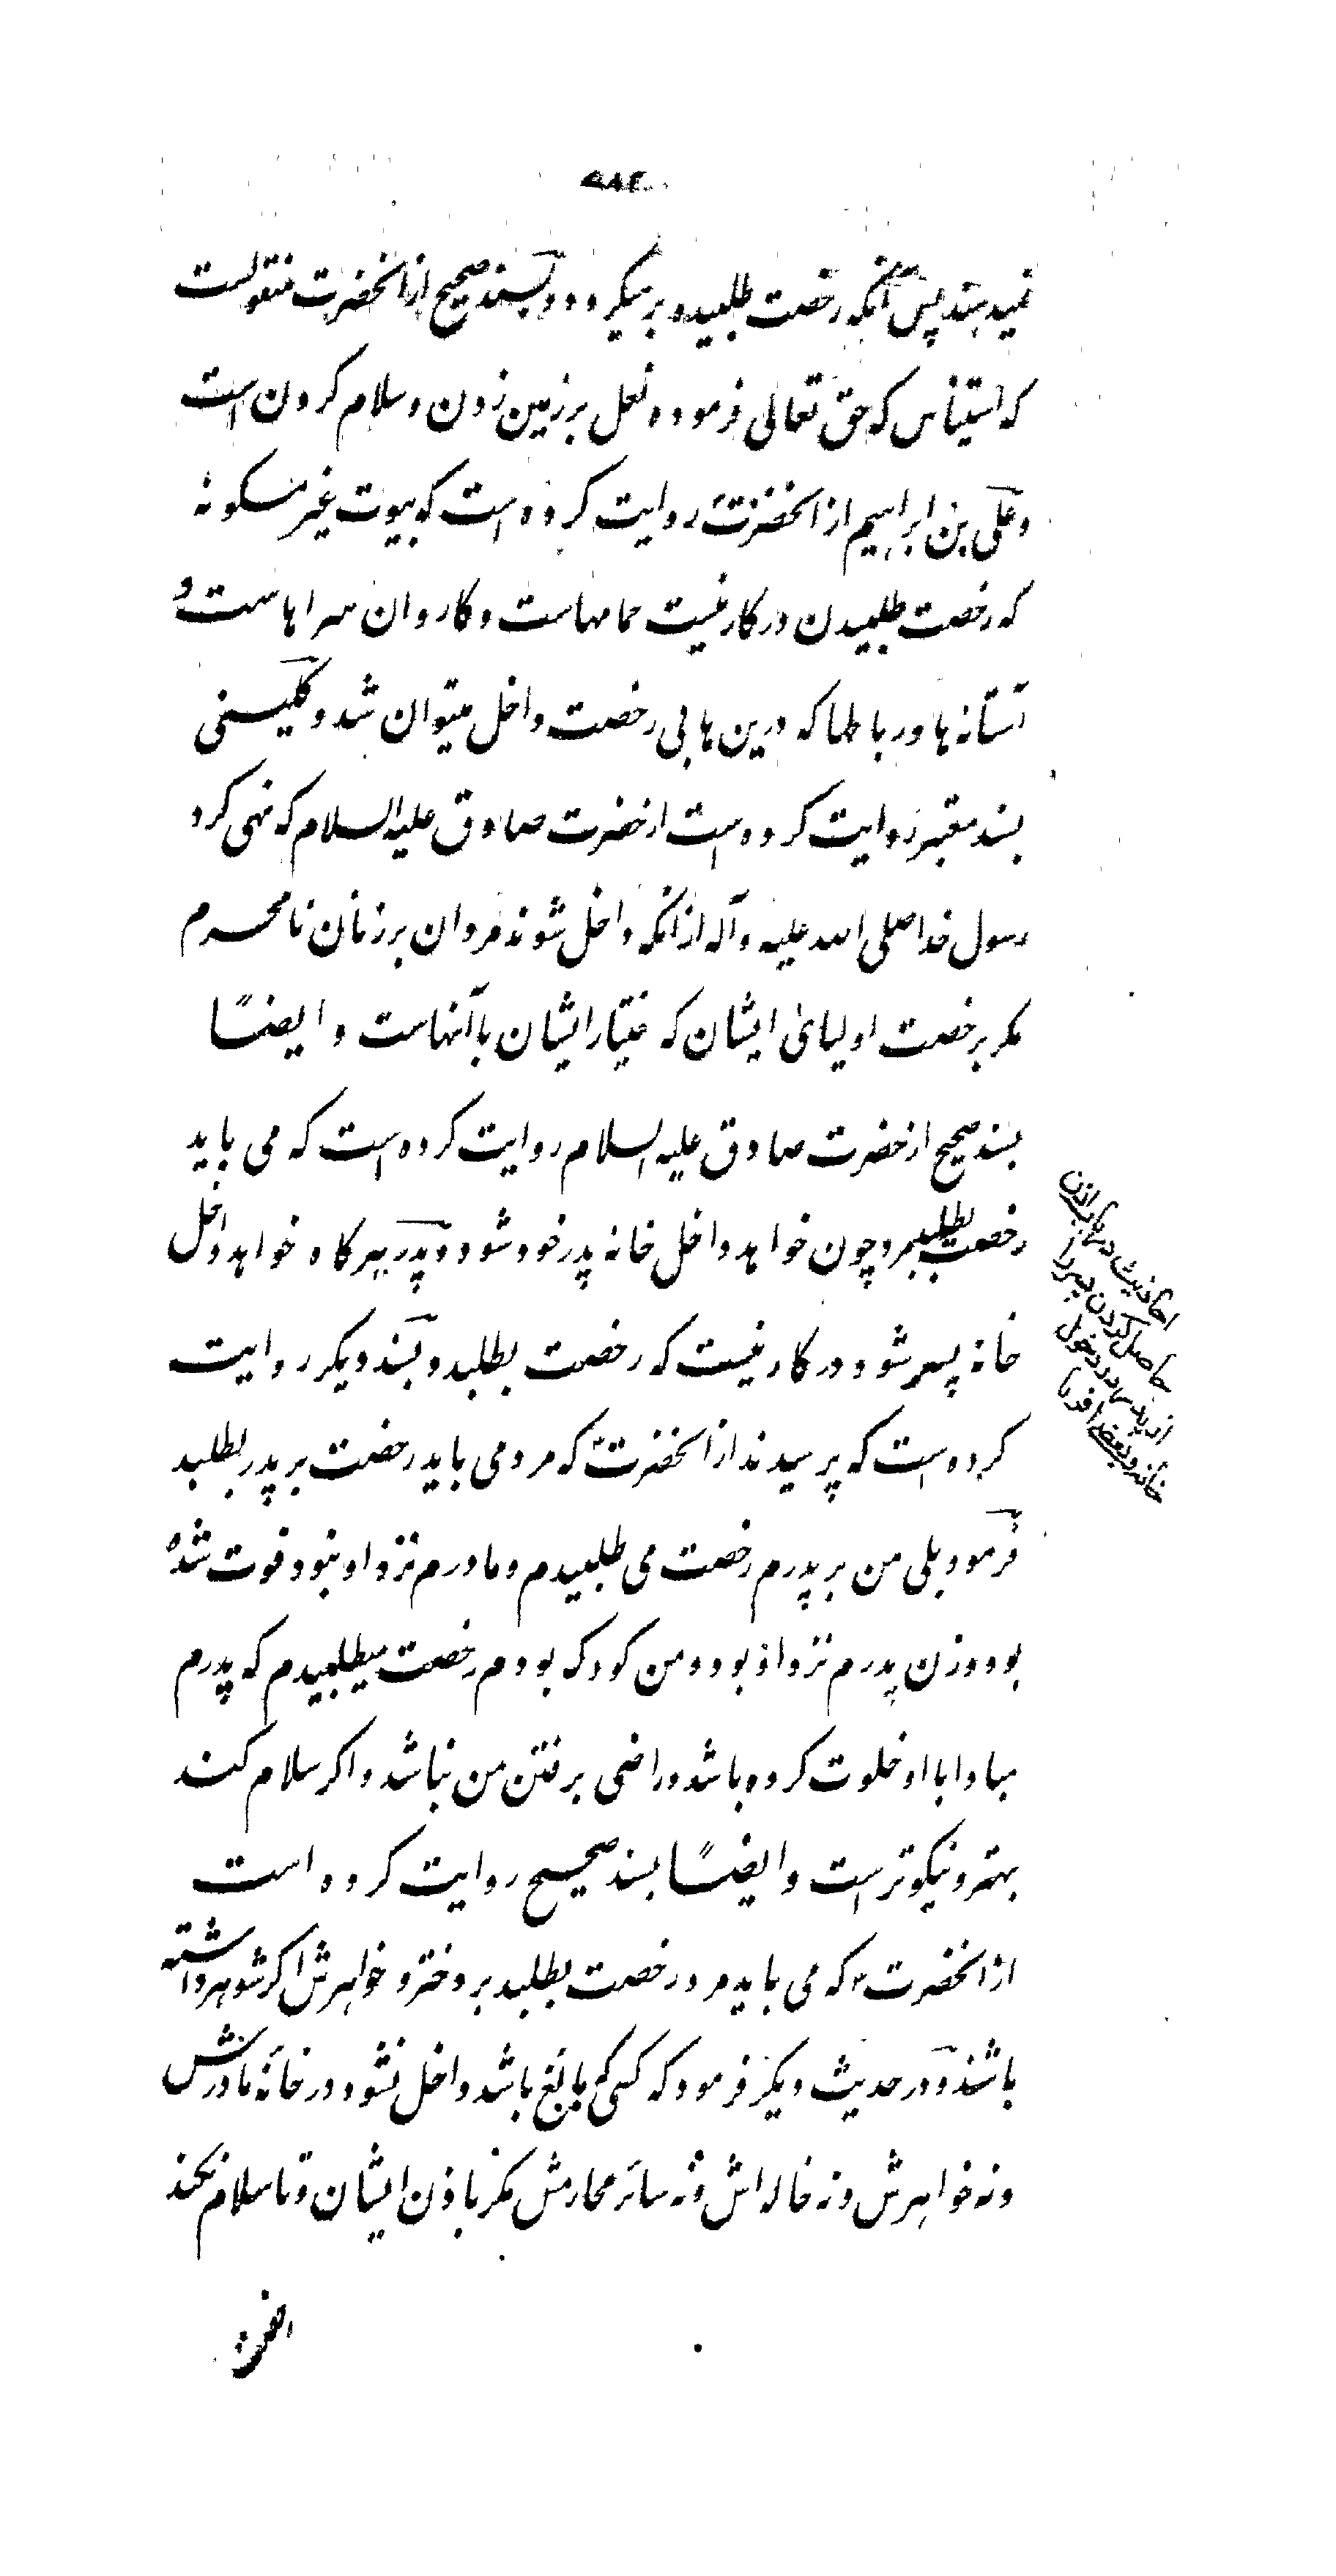 ۵۸۲
نمیدهند پس آنکه رخصت طلبیده برمیگردد و بسند صحیح ازانحضرت منقولست
که استیناس که حق تعالی فرموده نعل بر زمین زدن و سلام کردن است
و علی بن ابراهیم از انحضرتؑ روایت کرده است که بیوت غیر مسکونهٔ
که رخصت طلبیدن درکار نیست حمامهاست و کاروان سراهاست و
آستانه ها و رباطها که درین ها بی رخصت داخل میتوان شد و کلینی
بسند معتبر روایت کرده است از حضرت صادق علیه السلام که نهی کرد
رسول خدا صلی الله علیه و آله ازانکه داخل شوند مردان بر زنان نامحرم
مکر برخصت اولیای ایشان که اختیار ایشان با آنهاست و ایضًا
بسند صحیح از حضرت صادق علیه السلام روایت کرده است که می باید
رخصت بطلبد پسر چون خواهد داخل خانه پدر خود شود و پدر هرکاه خواهد داخل
خانه پسر شود درکار نیست که رخصت بطلبد و بسند دیکر روایت
کرده است که پرسیدند ازانحضرتؑ که مرد می باید رخصت بر پدر بطلبد
فرمود بلی من بر پدرم رخصت می طلبیدم و مادرم نزد او نبود فوت شدهٔ
بود و زن پدرم نزد او بود و من کودک بودم رخصت میطلبیدم که پدرم
مبادا با او خلوت کرده باشد و راضی برفتن من نباشد و اکر سلام کند
بهتر و نیکوتر است و ایضًا بسند صحیح روایت کرده است
ازانحضرتؑ که می باید مرد رخصت بطلبد بر دختر و خواهرش اکر شوهر داشته
باشند و در حدیث دیکر فرمود که کسی که بالغ باشد داخل نشود در خانهٔ مادرش
و نه خواهرش و نه خاله اش و نه سائر محارمش مکر باذن ایشان و تا سلام نکند
احادیث در باب اذن
حاصل کردن پسر را
از پدر در دخول
خانه و بعض افراد